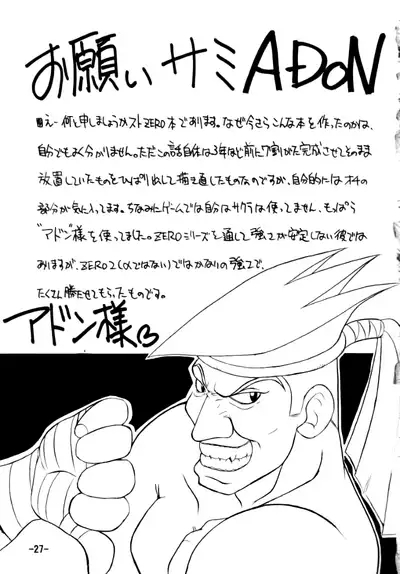 お願い サミADON
え… 何と申しましょうかストZERO本であります。なぜ今さらこんな本を作ったのかは、
自分でもよく分かりません。ただこの話自体は3年ほど前に7割がた完成させてそのまま
放置していたものをひっぱり出して描き直したものなのですが、自分的にはオチの
部分が気に入ってます。ちなみにゲームでは自分はサクラは使ってません、もっぱら
"アドン様"を使ってました。ZEROシリーズを通して強さが安定しない彼では
ありますが、ZERO2(αではない)ではかなりの強さで、
たくさん勝たせてもらったものです。
アドン様
-27-